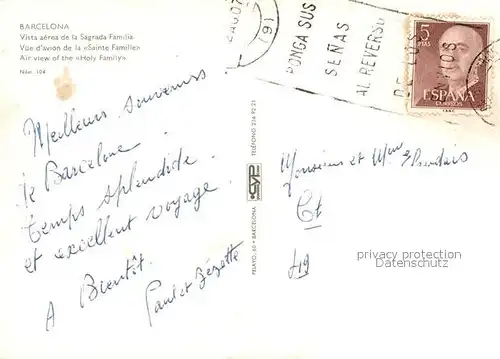 BARCELONA
Vista aérea de la Sagrada Familia
Vue d'avion de la «Sainte Famille»
Air view of the «Holy Family»
Núm. 104
PONGA SUS
SEÑAS
AL REVERSO
5
PTAS
ESPAÑA
CORREOS
Meilleurs souvenirs
de Barcelone
temps splendide
et excellent voyage.
A Bientôt.
Paul et
PELAYO, 60 • BARCELONA
CYP
TELÉFONO 224 92 21
Monsieur et Mme
privacy protection
Datenschutz